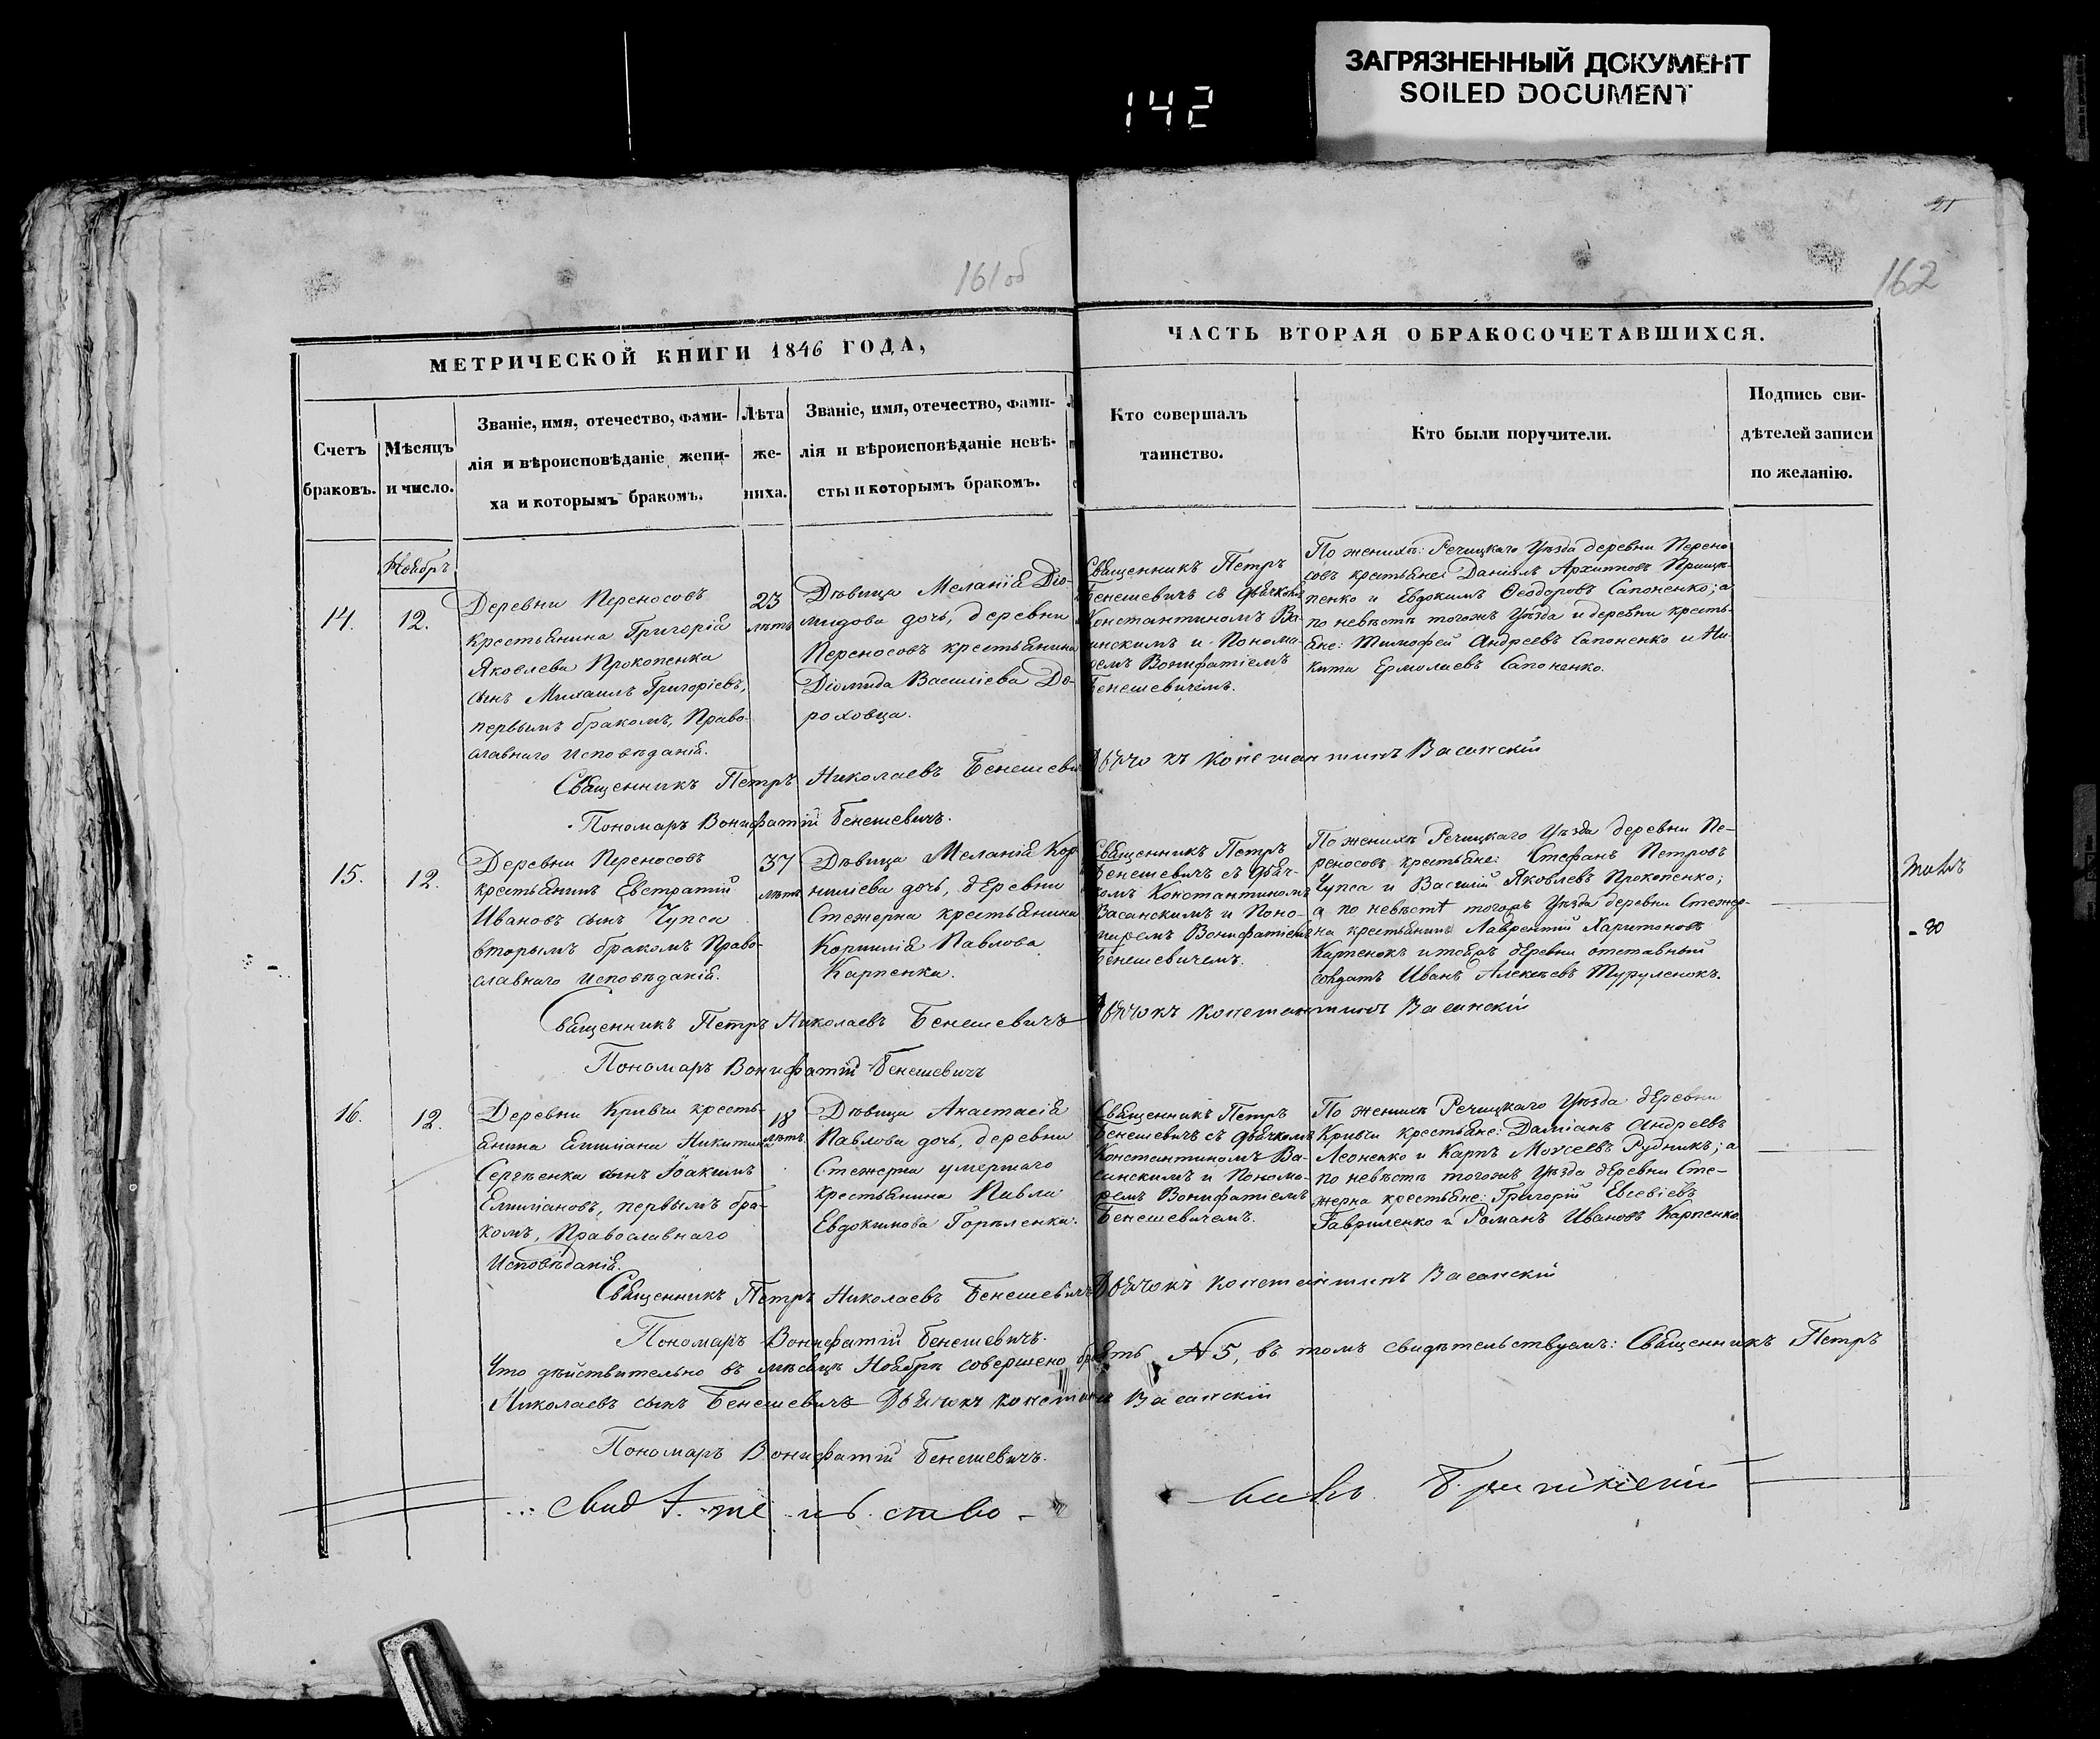 ЗАГРЯЗНЕННЫЙ ДОКУМЕНТ
SOILED DOCUMENT
142
21
161 об
162
МЕТРИЧЕСКОЙ КНИГИ 1846 ГОДА,
ЧАСТЬ ВТОРАЯ О БРАКОСОЧЕТАВШИХСЯ.
Счетъ
браковъ.
Мѣсяцъ
и число.
Званіе, имя, отечество, фами-
лія и вѣроисповѣданіе жени-
ха и которымъ бракомъ.
Лѣта
же-
ниха.
Званіе, имя, отечество, фами-
лія и вѣроисповѣданіе невѣ-
сты и которымъ бракомъ.
Кто совершалъ
таинство.
Кто были поручители.
Подпись сви-
дѣтелей записи
по желанію.
Ноябрь
14.
12.
Деревни Переносовъ
крестьянина Григорія
Яковлева Прокопенка
сынъ Михаилъ Григоріевъ,
первымъ бракомъ, Право-
славнаго исповѣданія.
23
лѣтъ
Дѣвица Меланія Діо-
мидова дочь, деревни
Переносовъ крестьянина
Діомида Василіева До-
роховца.
Священникъ Петръ
Бенешевичъ съ дьячкомъ
Константиномъ Ва-
санскимъ и Понома-
ремъ Вонифатіемъ
Бенешевичемъ.
По женихѣ: Речицкаго Уѣзда деревни Перено-
совъ крестьяне: Даніилъ Архиповъ
пенко и Евдокимъ Ѳеодоровъ Сапоненко; а
по невѣстѣ тогожъ Уѣзда и деревни кресть-
яне: Тимофей Андреевъ Сапоненко и Ни-
кита Ермолаевъ Сапоненко.
Священникъ Петръ Николаевъ Бенешевичъ Дьячокъ Константинъ Васанскій
Пономарь Вонифатій Бенешевичъ.
15.
12.
Деревни Переносовъ
крестьянинъ Евстратій
Ивановъ сынъ Чупса
вторымъ бракомъ Право-
славнаго исповѣданія.
37
лѣтъ
Дѣвица Меланія Кор-
ниліева дочь, деревни
Стежерна крестьянина
Корнилія Павлова
Карпенка.
Священникъ Петръ
Бенешевичъ съ дьяч-
комъ Константиномъ
Васанскимъ и Поно-
маремъ Вонифатіемъ
Бенешевичемъ.
По женихѣ Речицкаго Уѣзда деревни Пе-
реносовъ крестьяне: Стефанъ Петровъ
Чупса и Василій Яковлевъ Прокопенко;
а по невѣстѣ тогожъ Уѣзда деревни Стежер-
на крестьянинъ Лаврентій Харитоновъ
Карпенокъ и тойжъ деревни отставный
солдатъ Иванъ Алексѣевъ Туруленокъ.
Священникъ Петръ Николаевъ Бенешевичъ Дьячокъ Константинъ Васанскій
Пономарь Вонифатій Бенешевичъ
16.
12.
Деревни Кривчи кресть-
янина Емиліана Никитина
Сергѣенка сынъ Іоакимъ
Емиліановъ, первымъ бра-
комъ, Православнаго
Исповѣданія.
18
лѣтъ.
Дѣвица Анастасія
Павлова дочь, деревни
Стежерна умершаго
крестьянина Павла
Евдокимова Горѣленка.
Священникъ Петръ
Бенешевичъ съ дьячкомъ
Константиномъ Ва-
санскимъ и Понома-
ремъ Вонифатіемъ
Бенешевичемъ.
По женихѣ Речицкаго Уѣзда деревни
Кривчи крестьяне: Даміанъ Андреевъ
Леоненко и Карпъ Моисеевъ Рудникъ; а
по невѣстѣ тогожъ Уѣзда деревни Сте-
жерна крестьяне: Григорій Евсевіевъ
Гавриленко и Романъ Ивановъ Карпенко.
Священникъ Петръ Николаевъ Бенешевичъ Дьячокъ Константинъ Васанскій
Пономарь Вонифатій Бенешевичъ.
Что дѣйствительно въ мѣсяцѣ Ноябрѣ совершено № 5, въ томъ свидѣтельствуемъ: Священникъ Петръ
Николаевъ сынъ Бенешевичъ Дьячокъ Васанскій
Пономарь Вонифатій Бенешевичъ.
свидѣтельство